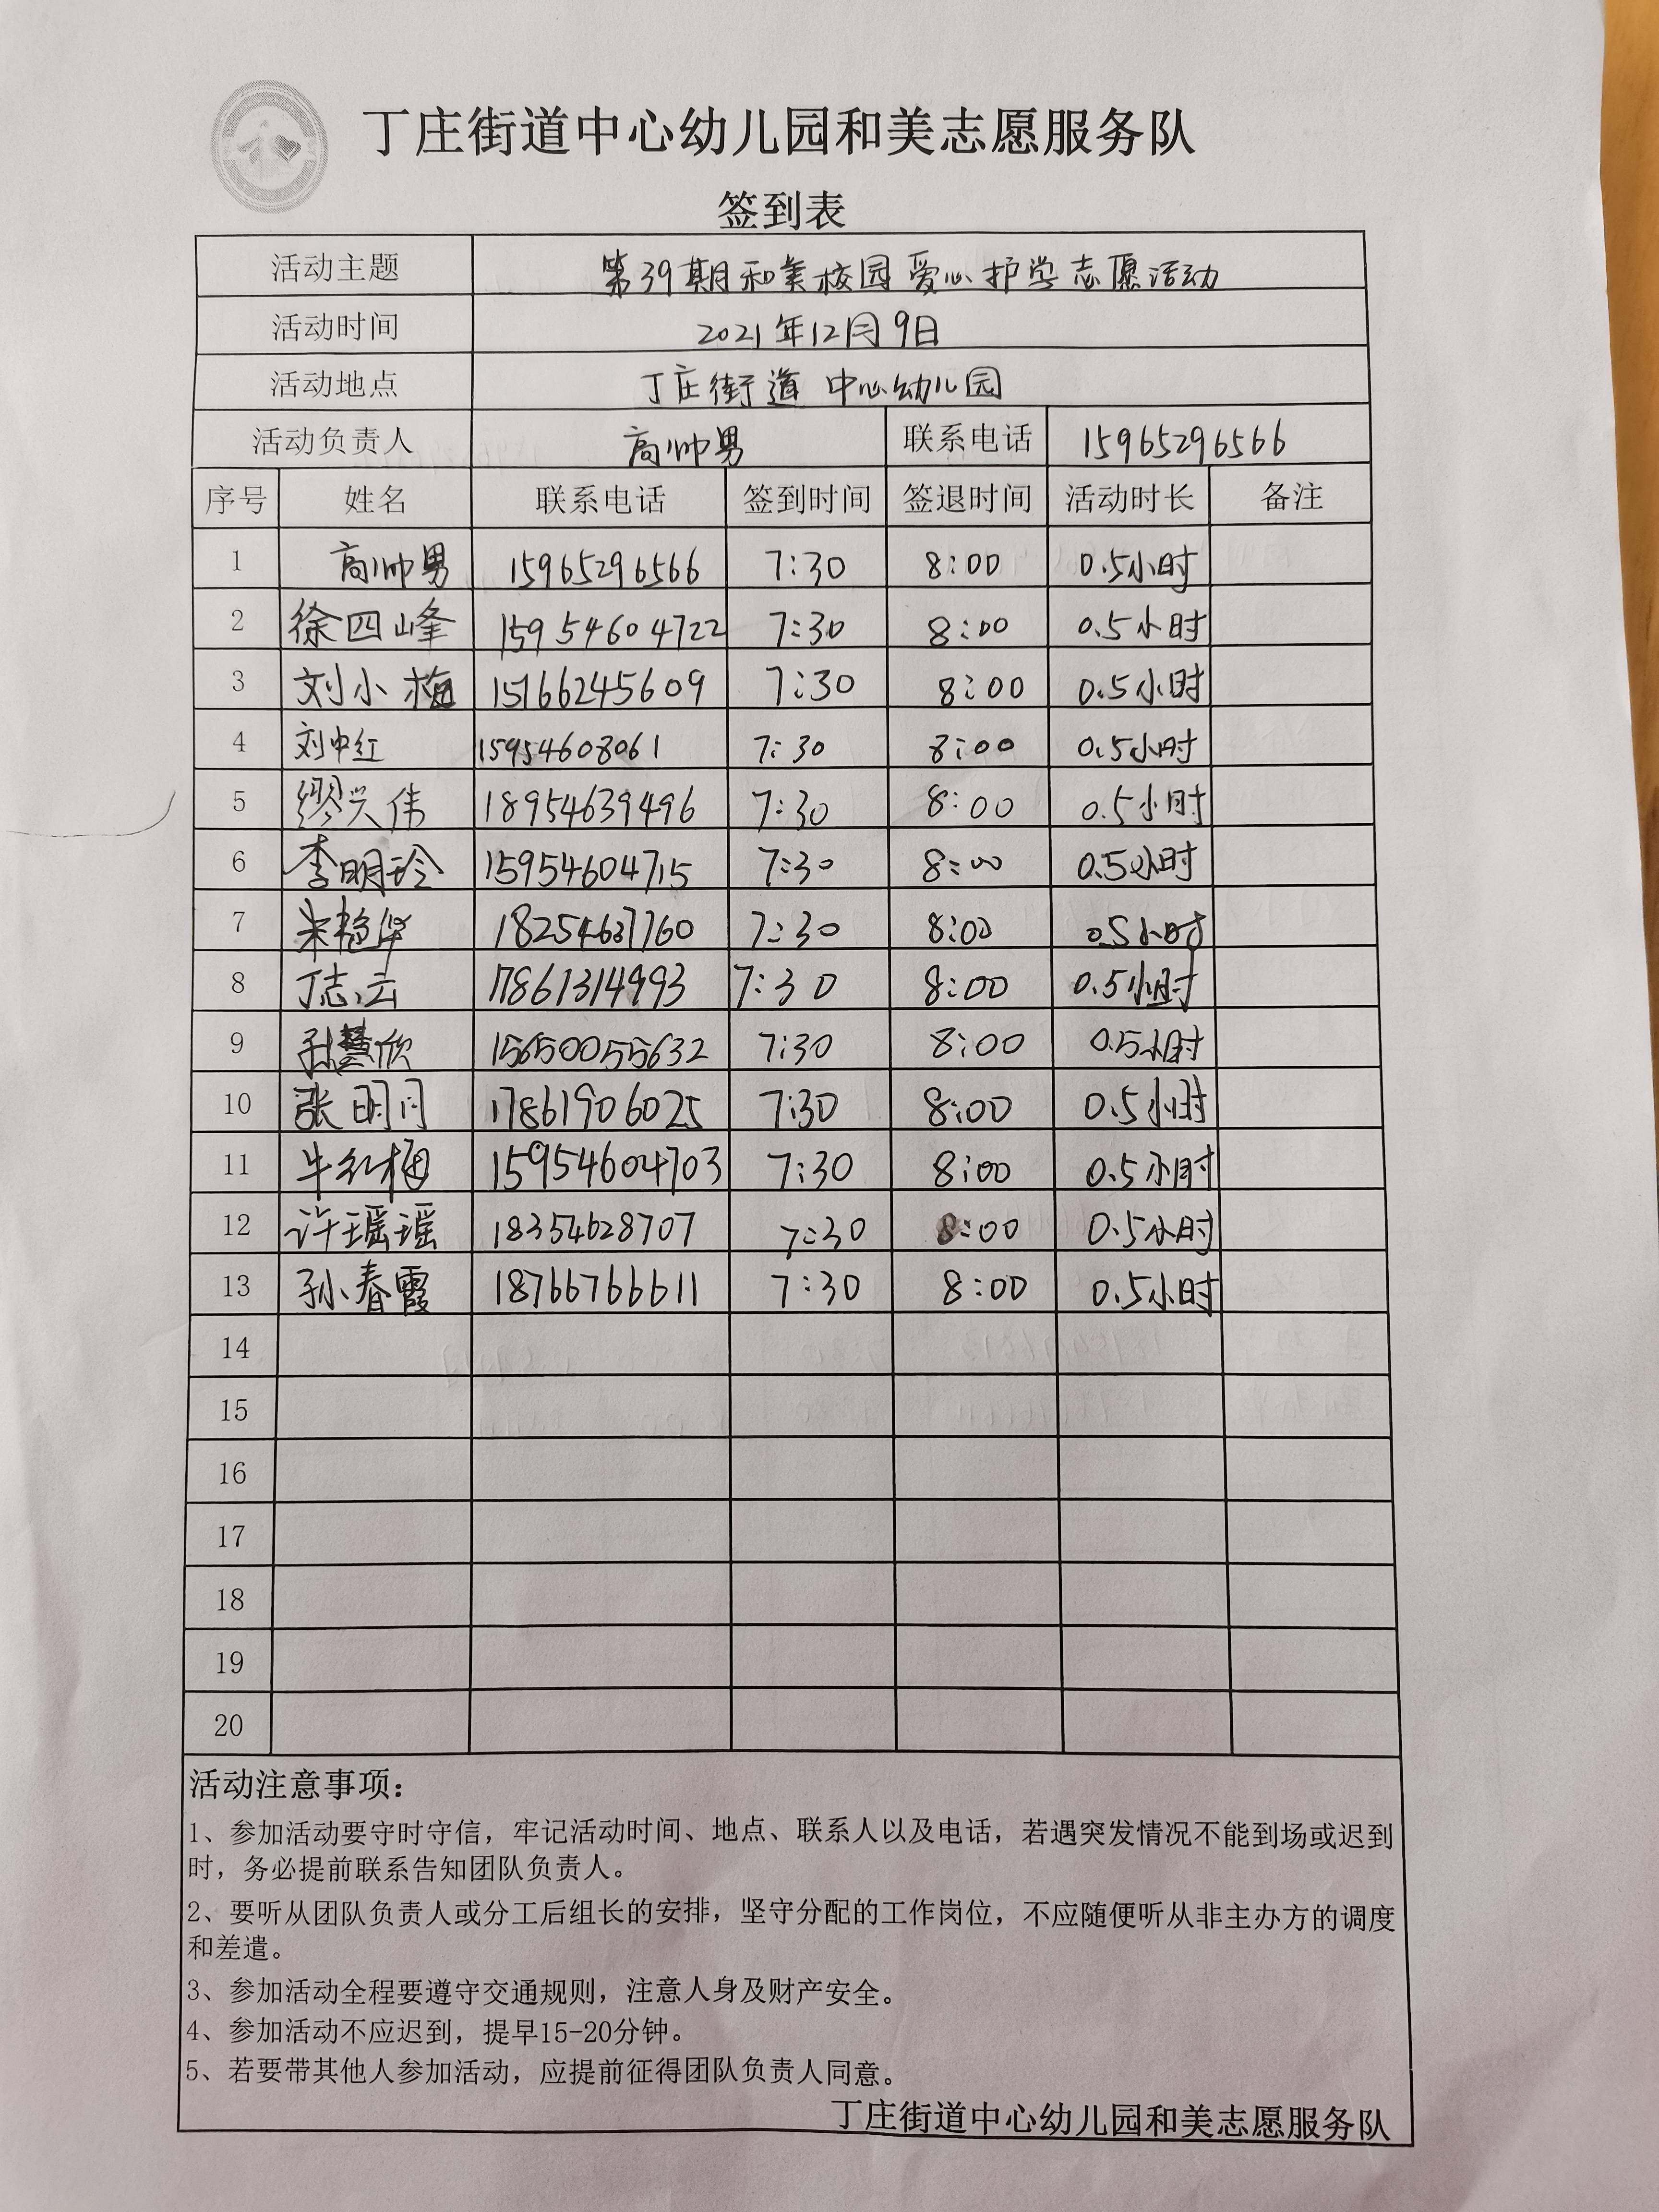 丁庄街道中心幼儿园和美志愿服务队
签到表
活动主题 第39期和美校园爱心护学志愿活动
活动时间 2021年12月9日
活动地点 丁庄街道中心幼儿园
活动负责人 高帅男 联系电话 15965296566
序号 姓名 联系电话 签到时间 签退时间 活动时长 备注
1 高帅男 15965296566 7:30 8:00 0.5小时
2 徐四峰 15954604722 7:30 8:00 0.5小时
3 刘小梅 15166245609 7:30 8:00 0.5小时
4 刘中红 15954608061 7:30 8:00 0.5小时
5 缪兴伟 18954639496 7:30 8:00 0.5小时
6 李明玲 15954604715 7:30 8:00 0.5小时
7 7:30 8:00 0.5小时
8 丁志云 17861314993 7:30 8:00 0.5小时
9 孙慧欣 15650055632 7:30 8:00 0.5小时
10 张明月 17861906025 7:30 8:00 0.5小时
11 牛红梅 15954604703 7:30 8:00 0.5小时
12 许瑶瑶 18354628707 7:30 8:00 0.5小时
13 孙春霞 18766766611 7:30 8:00 0.5小时
14
15
16
17
18
19
20
活动注意事项：
1、参加活动要守时守信，牢记活动时间、地点、联系人以及电话，若遇突发情况不能到场或迟到
时，务必提前联系告知团队负责人。
2、要听从团队负责人或分工后组长的安排，坚守分配的工作岗位，不应随便听从非主办方的调度
和差遣。
3、参加活动全程要遵守交通规则，注意人身及财产安全。
4、参加活动不应迟到，提早15-20分钟。
5、若要带其他人参加活动，应提前征得团队负责人同意。
丁庄街道中心幼儿园和美志愿服务队